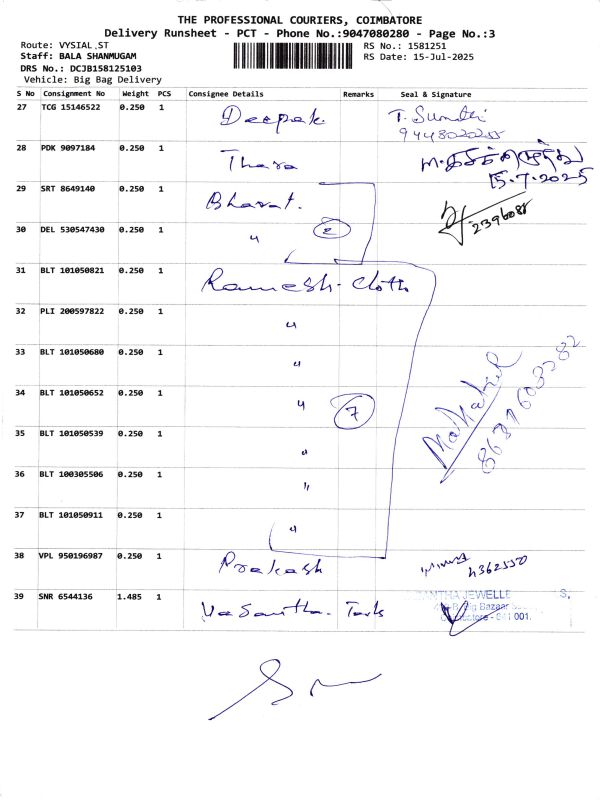 THE PROFESSIONAL COURIERS, COIMBATORE
Delivery Runsheet - PCT - Phone No.:9047080280 - Page No.:3
Route: VYSIAL,ST
Staff: BALA SHANMUGAM
DRS No.: DCJB158125103
Vehicle: Big Bag Delivery
RS No.: 1581251
RS Date: 15-Jul-2025
S No Consignment No Weight PCS Consignee Details Remarks Seal & Signature
27 TCG 15146522 0.250 1 Deepak T. Sumathi
28 PDK 9097184 0.250 1 Thara
15.7.2025
29 SRT 8649140 0.250 1 Bharat.
2396088
30 DEL 530547430 0.250 1 " 2
31 BLT 101050821 0.250 1 Ramesh-Cloth
32 PLI 200597822 0.250 1 "
33 BLT 101050680 0.250 1 "
34 BLT 101050652 0.250 1 " 7
35 BLT 101050539 0.250 1 "
36 BLT 100305506 0.250 1 "
37 BLT 101050911 0.250 1 "
38 VPL 950196987 0.250 1 Prakash 4362550
39 SNR 6544136 1.485 1 Vasantha. JEWELLE
Big Bazaar
001.